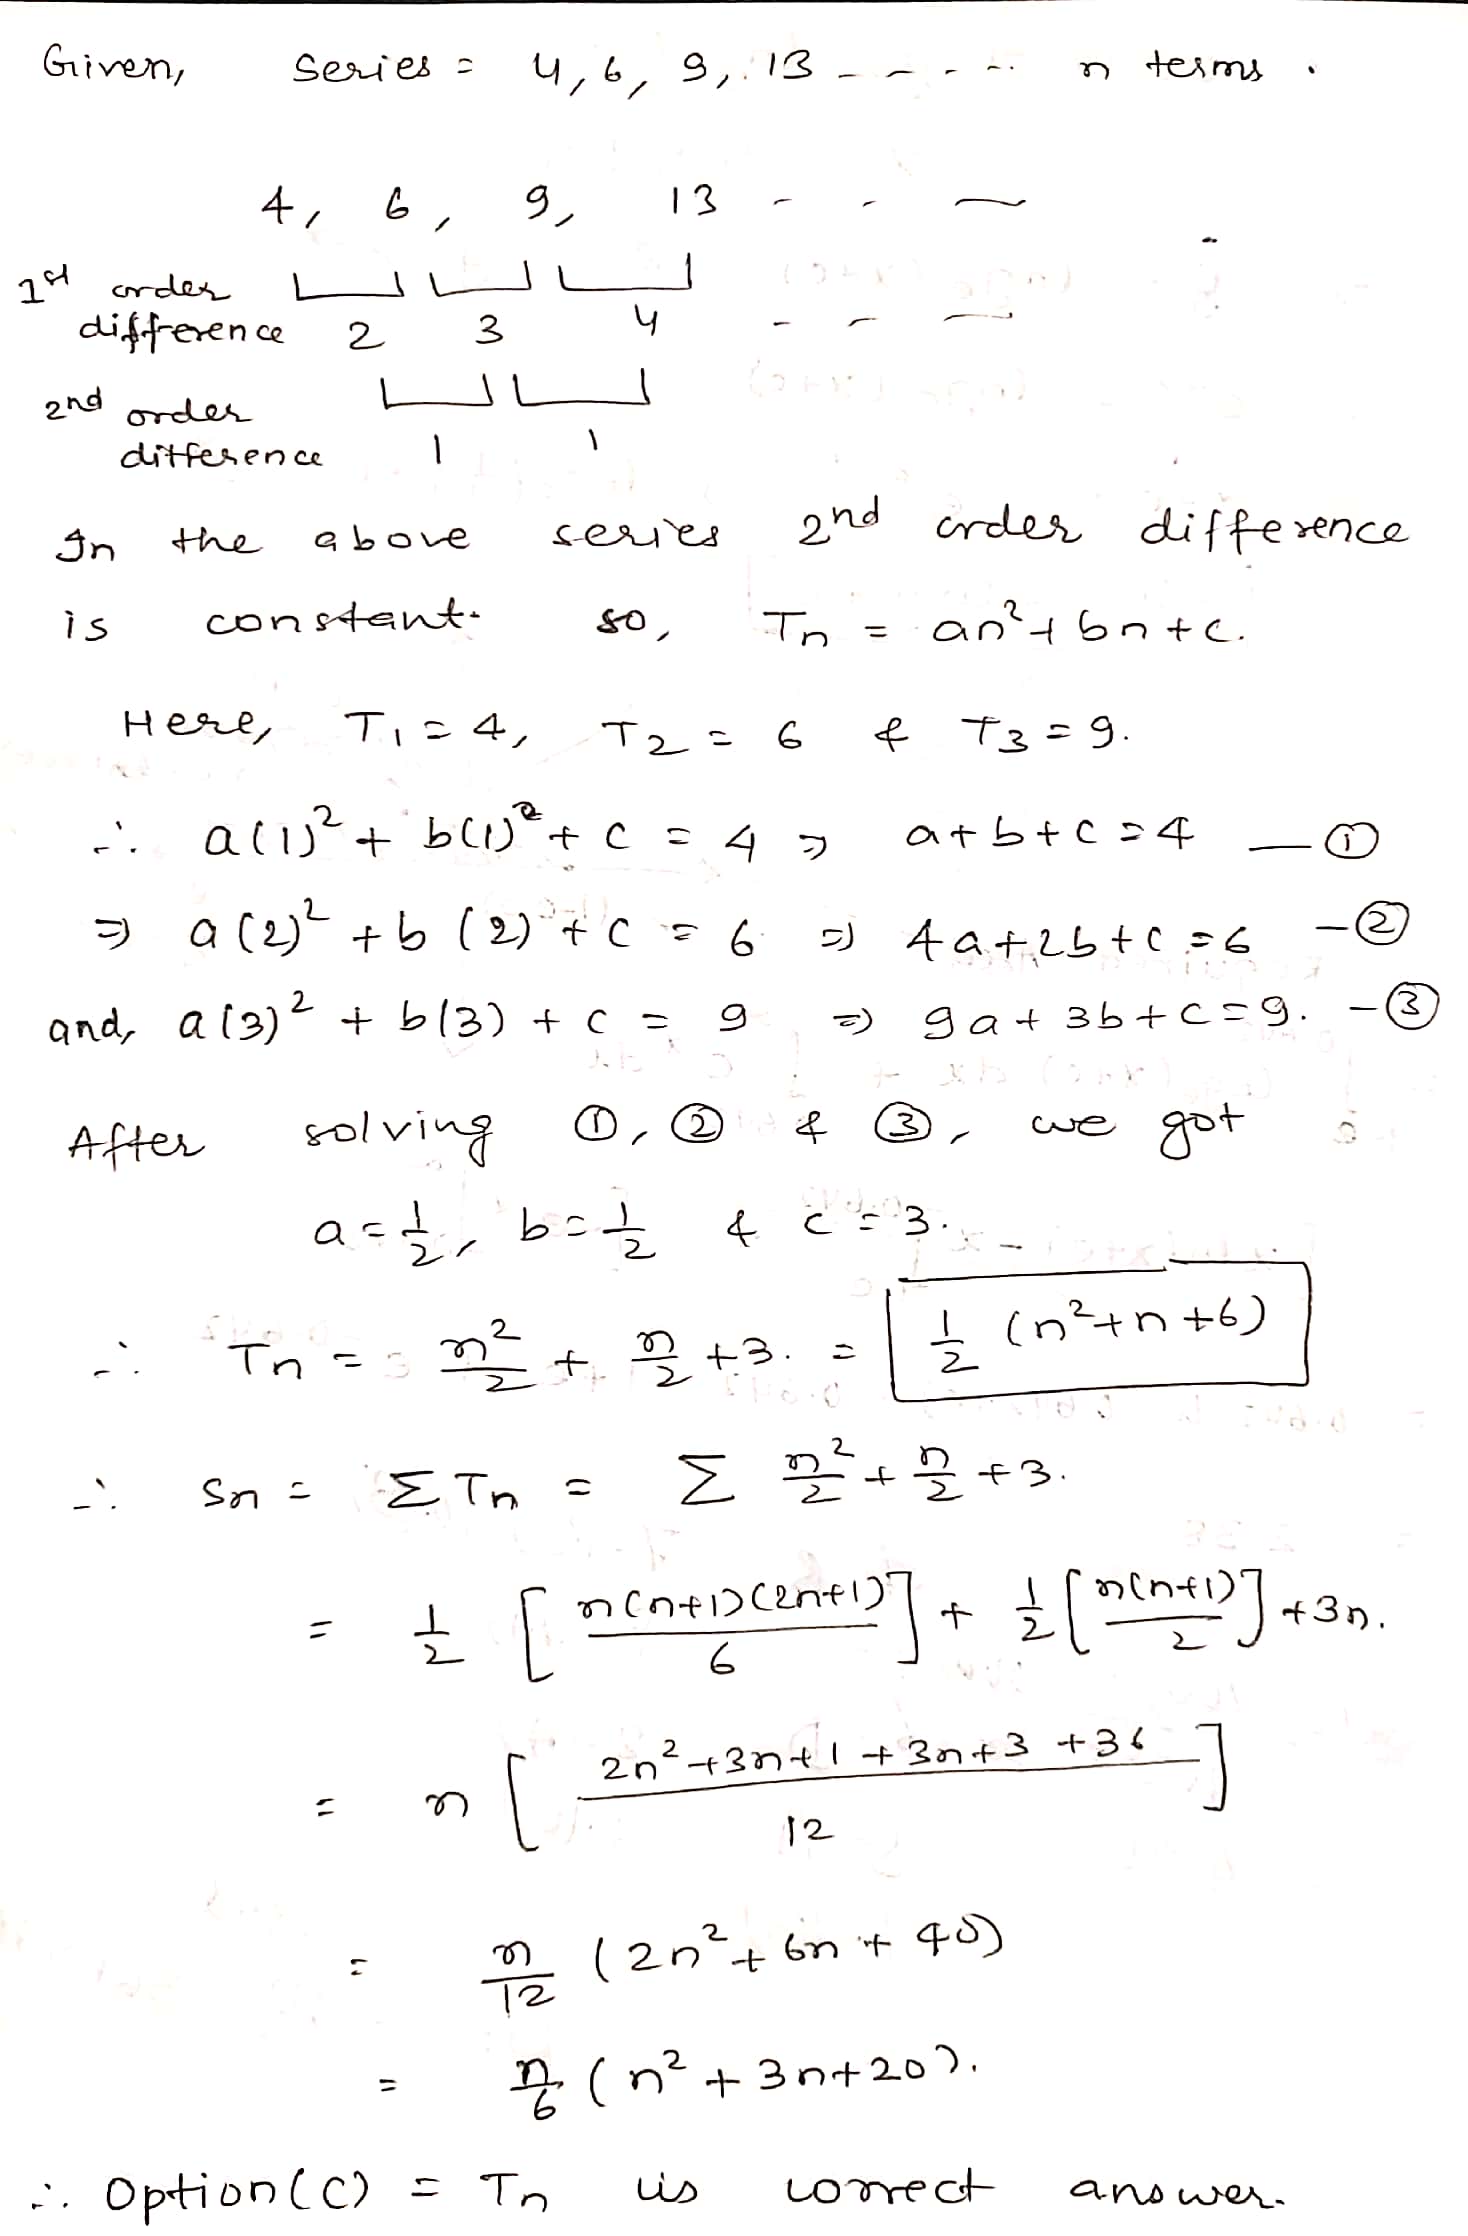 Given, series = 4, 6, 9, 13 - - - - - n terms .
4, 6, 9, 13 - - -
1st order
difference 2 3 4 - - -
2nd order
difference 1 1
In the above series 2nd order difference
is constant. so, Tn = an² + bn + c.
Here, T₁ = 4, T2 = 6 & T3 = 9.
∴ a(1)² + b(1) + c = 4 ⇒ a+b+c = 4 — ①
⇒ a(2)² + b(2) + c = 6 ⇒ 4a+2b+c = 6 - ②
and, a(3)² + b(3) + c = 9 ⇒ 9a+3b+c = 9. - ③
After solving ①, ② & ③, we got
a = 1/2, b = 1/2 & c = 3.
∴ Tn = n²/2 + n/2 + 3. = 1/2 (n²+n+6)
∴ Sn = ΣTn = Σ n²/2 + n/2 + 3.
= 1/2 [n(n+1)(2n+1)/6] + 1/2 [n(n+1)/2] + 3n.
= n [2n²+3n+1+3n+3+36 / 12]
= n/12 (2n²+6n+40)
= n/6 (n²+3n+20).
∴ Option (C) = Tn is correct answer.